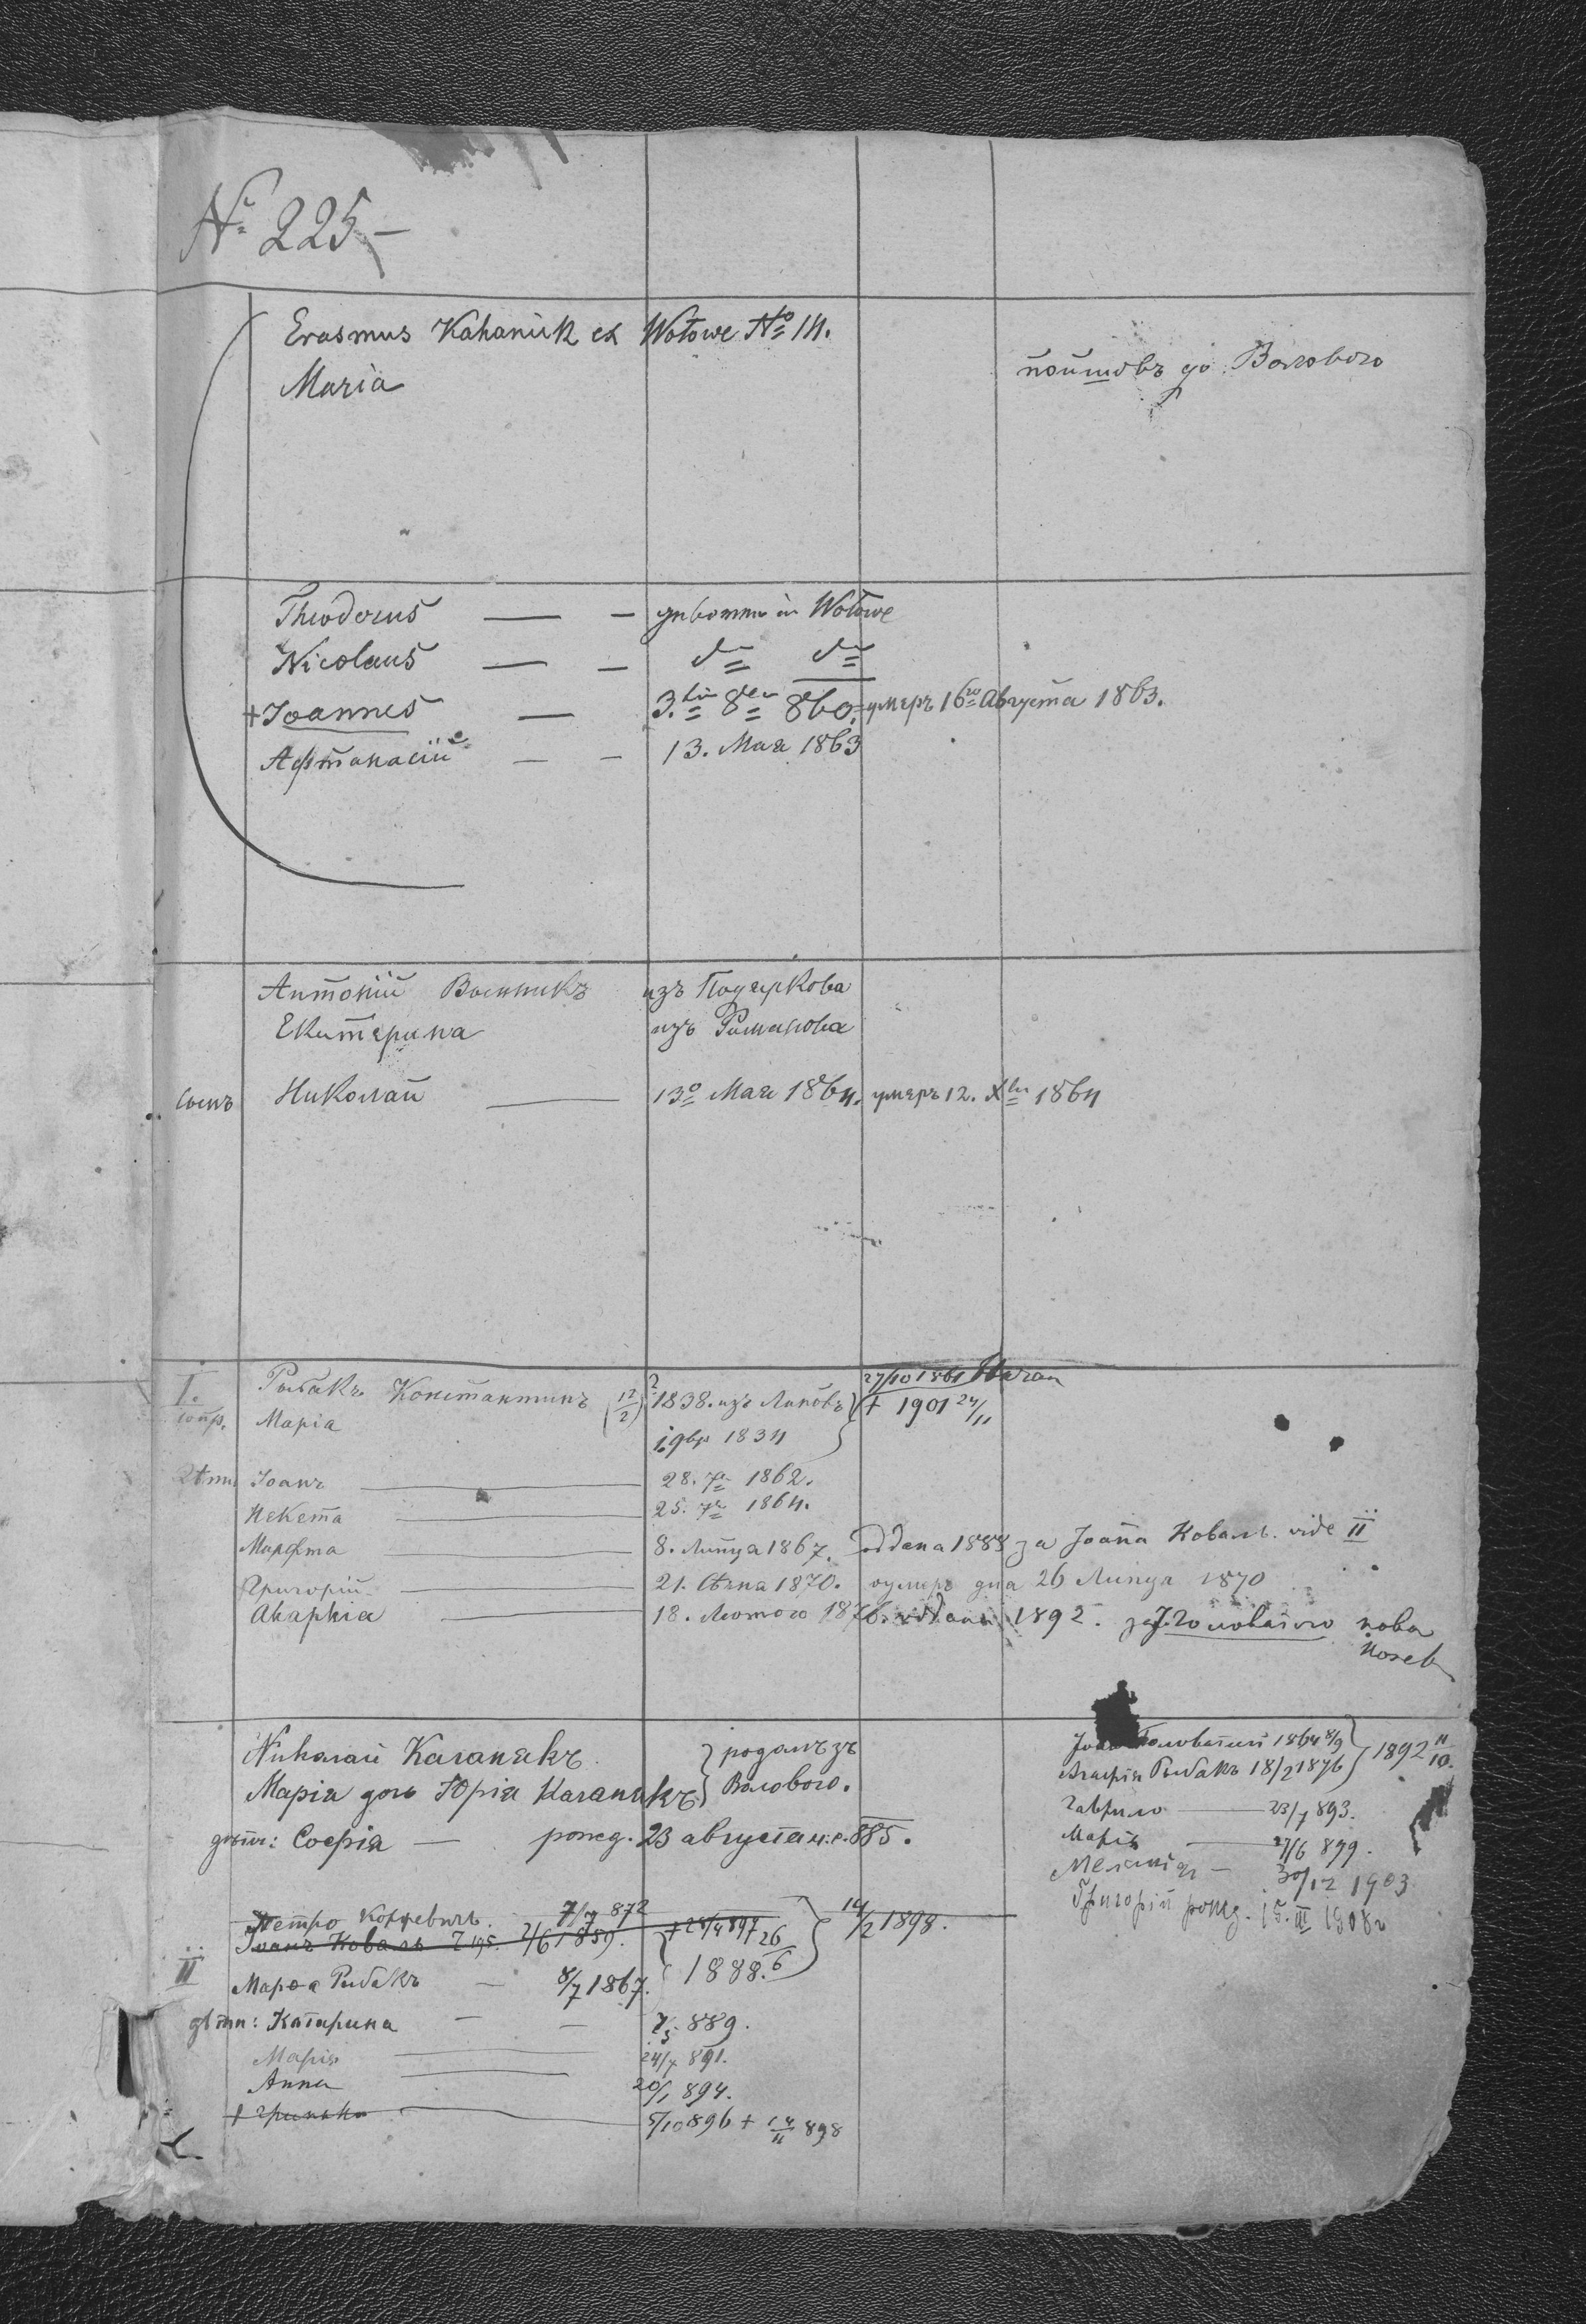 № 225 –
Erasmus Kahaniuk ex Wołowe No 14.
Maria
пойшовъ до Волового
Theodorus — — geboren in Wołowe
Nicolaus — — do do
+ Joannes — 3. 8 860. умеръ 16го Августа 1863.
Афтанасiй — — 13. Мая 1863
Антонiй изъ Подяркова
Екатерина изъ Романова
сынъ Николай — 13о Мая 1864. умеръ 12. Xbr 1864
I. Рыбакъ Константинъ (12/2) ? 1838. изъ 27/10 1861
супр. Марiа 1834 + 1901 24/11
Дѣти Iоанъ — 28. 7 1862.
Некета — 25. 7 1864.
Марфта — 8. Липця 1867. oddana 1888 за Joана Коваль. vide II
Григорiй — 21. Сѣчня 1870. оумеръ дня 26 Липця 1870
Акафiа — 18. Лютого 1876. 1892. за J. Головатого нова
Николай Каганякъ } родомъ зъ
Марiя дочь Юрiя Каганякъ } Волового.
дѣти: Софiя — рожд. 23 августа н.с. 885.
Головатий 1864 8/9 } 1892 11/10.
Рыбакъ 18/2 1876
Гаврило — 23/7 893.
Марiя — 27/6 899.
Меланiя — 30/12 1903
Григорiй рожд. 15. III 1908
Петро 7/7 872 14/2 1898.
Iванъ Коваль 2/6 1859. + 28/4 897
II Марѳа Рибакъ — 8/7 1867. 1888. 26/6
дѣти: Катарина — — 889.
Марiя — 24/7 891.
Анна — 20/1 894.
+ Гринько — 5/10 896 + 14/11 898